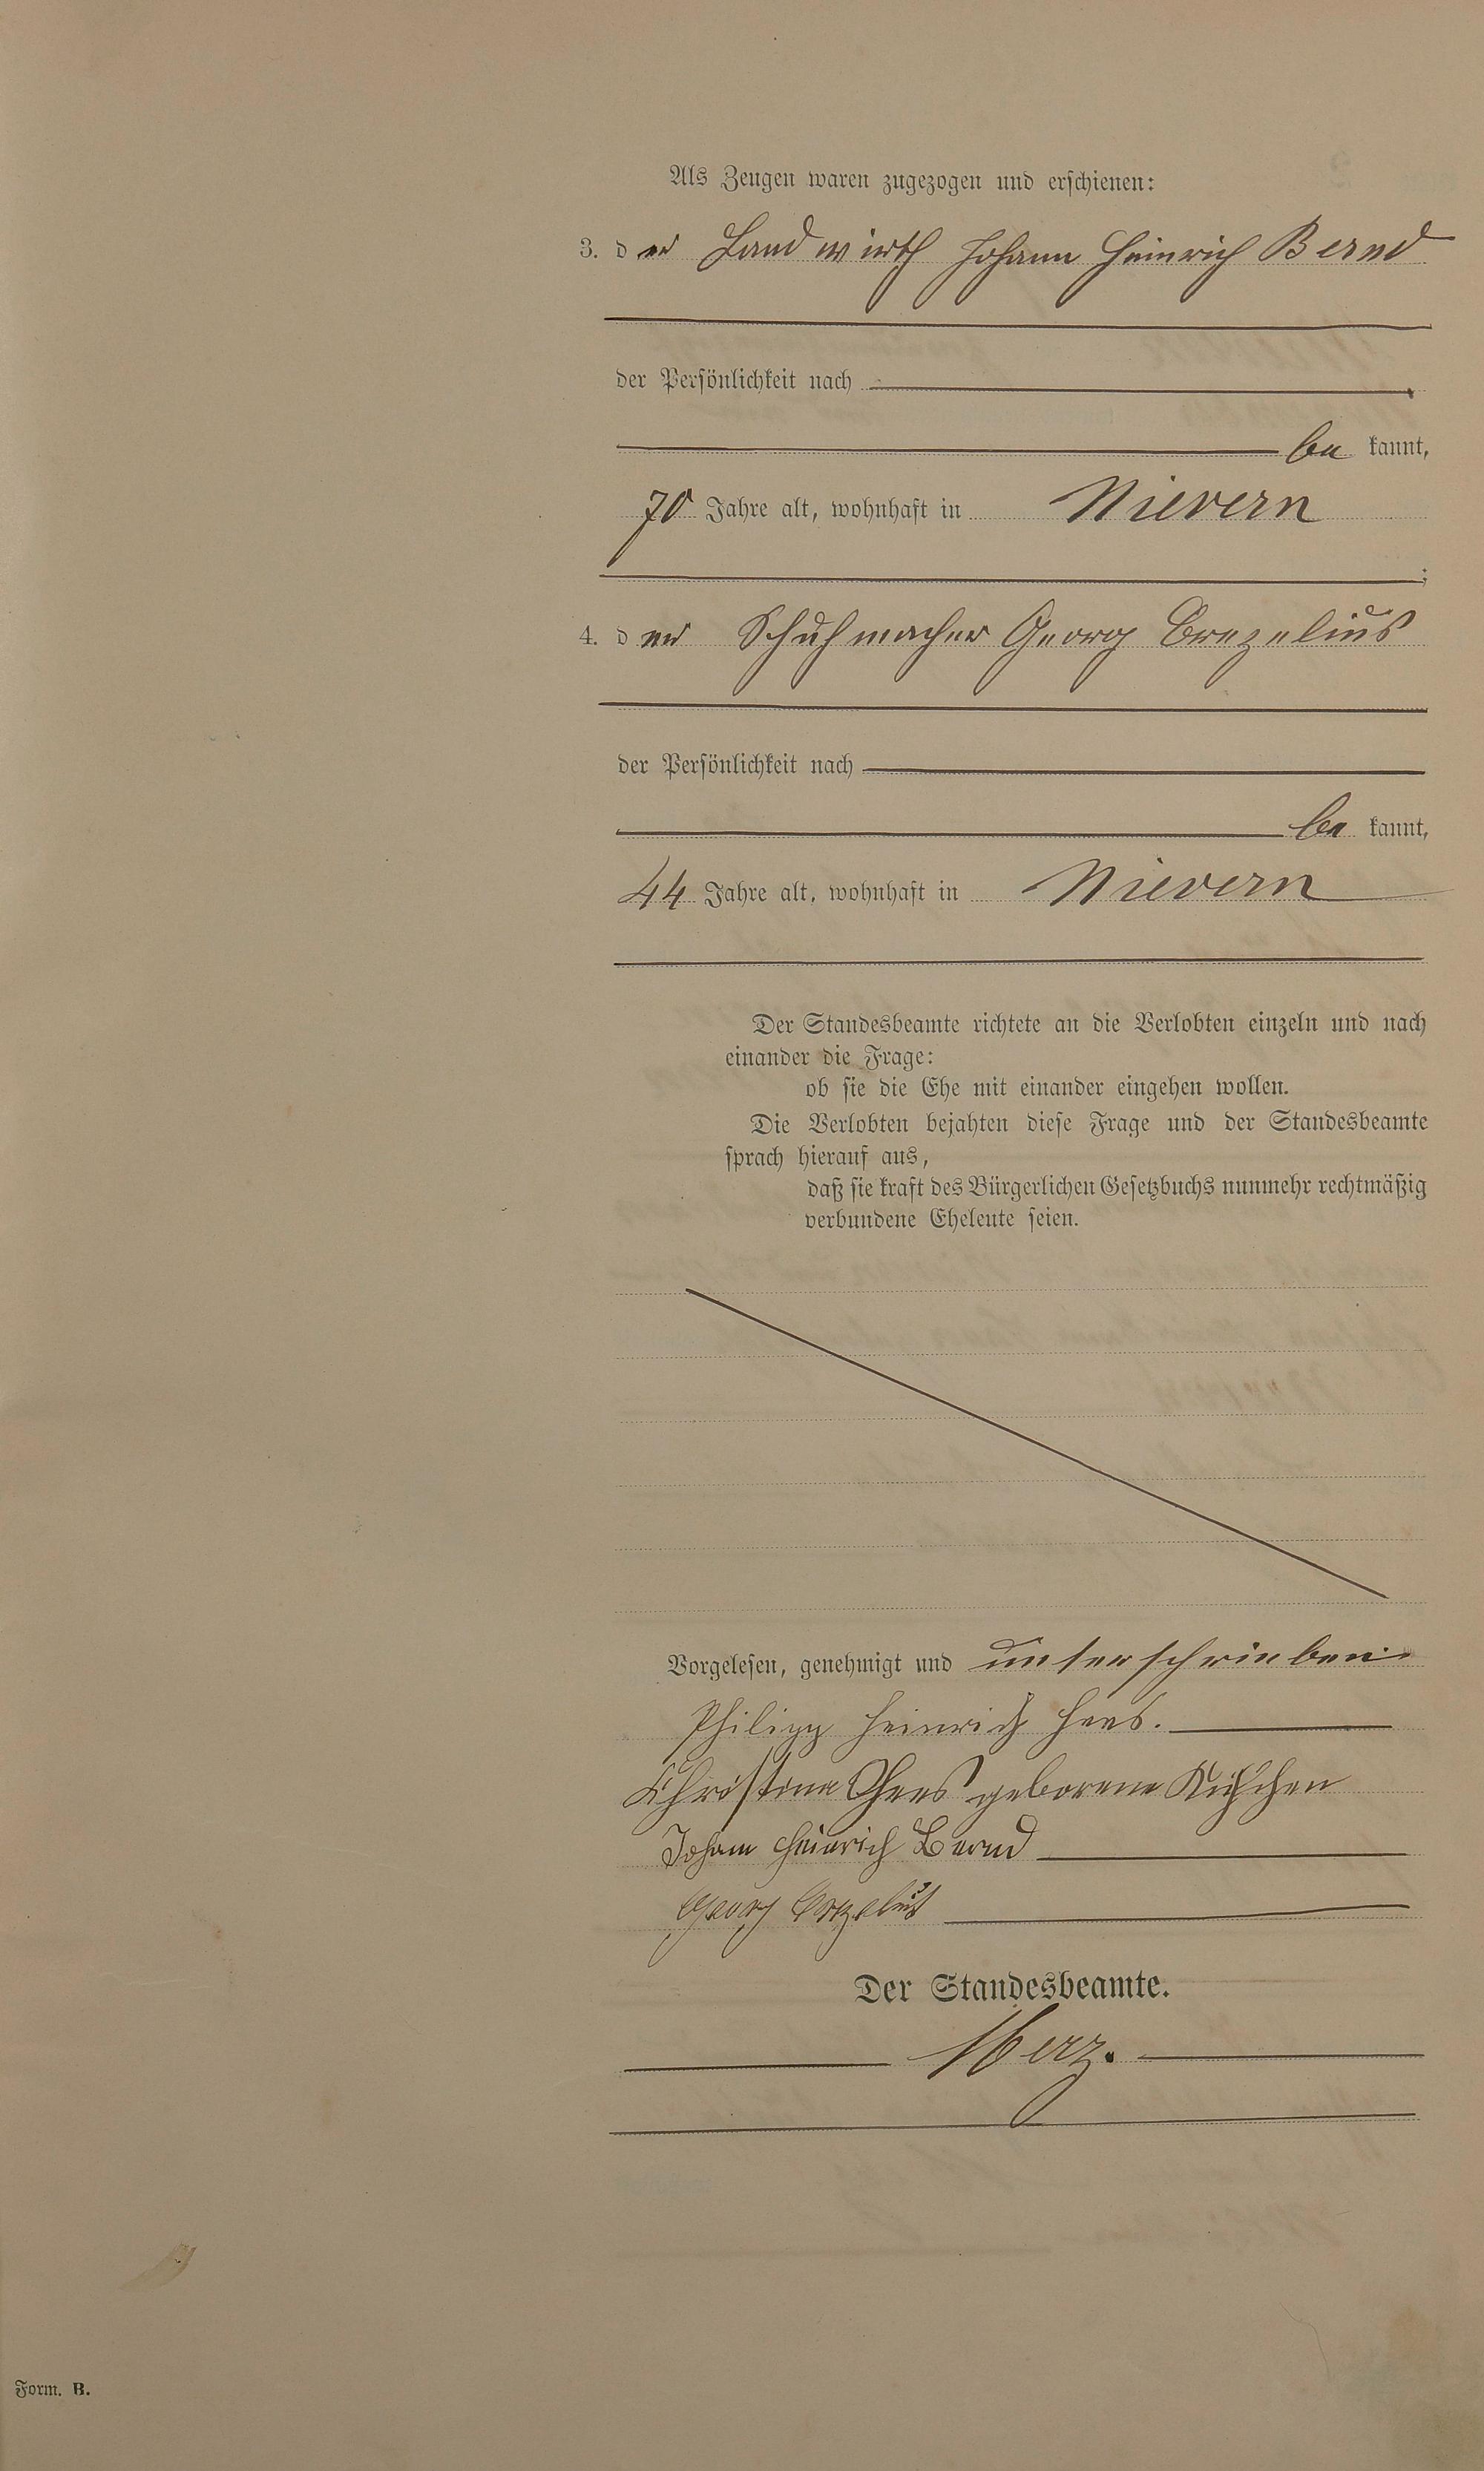 Als Zeugen waren zugezogen und erschienen:
3. der Landwirth Johann Heinrich Bernd
der Persönlichkeit nach
be kannt,
70 Jahre alt, wohnhaft in Nievern
;
4. der Schuhmacher Georg Crezelius
der Persönlichkeit nach
be kannt,
44 Jahre alt, wohnhaft in Nievern
Der Standesbeamte richtete an die Verlobten einzeln und nach
einander die Frage:
ob sie die Ehe mit einander eingehen wollen.
Die Verlobten bejahten diese Frage und der Standesbeamte
sprach hierauf aus,
daß sie kraft des Bürgerlichen Gesetzbuchs nunmehr rechtmäßig
verbundene Eheleute seien.
Vorgelesen, genehmigt und unterschrieben.
Philipp Heinrich Hees.
Christina Hees geborene
Johann Heinrich Bernd
Georg Crezelius
Der Standesbeamte.
Form. B.